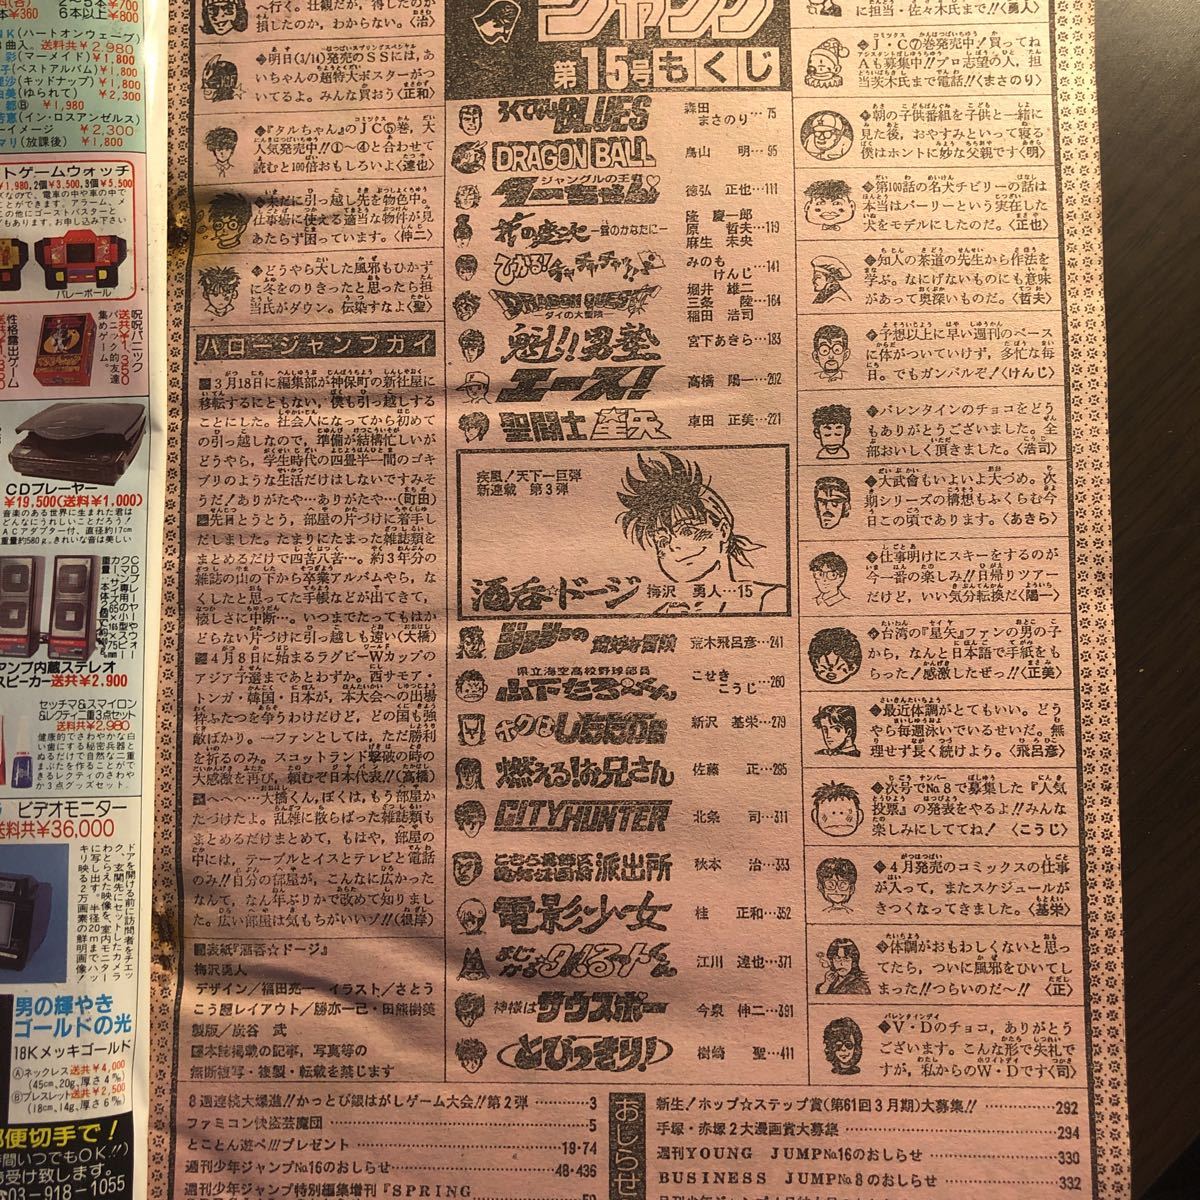 ジャンプ
第15号もくじ
ろくでなしBLUES 森田まさのり…75
DRAGON BALL 鳥山 明…95
ジャングルの王者 ターちゃん♡ 徳弘 正也…111
花の慶次 ―雲のかなたに― 隆 慶一郎 原 哲夫 麻生 未央…119
ひかる!チャチャチャ!! みのもけんじ…141
DRAGON QUEST ―ダイの大冒険― 堀井 雄二 三条 陸 稲田 浩司…164
魁!!男塾 宮下あきら…183
エース! 高橋 陽一…202
聖闘士星矢 車田 正美…221
疾風!天下一巨弾
新連載 第3弾
酒呑☆ドージ 梅沢 勇人…15
ジョジョの奇妙な冒険 荒木飛呂彦…241
県立海空高校野球部員 山下たろーくん こせきこうじ…260
ボクはしたたか君 新沢 基栄…279
燃える!お兄さん 佐藤 正…295
CITY HUNTER 北条 司…311
こちら葛飾区亀有公園前派出所 秋本 治…333
電影少女 桂 正和…352
まじかる☆タルるートくん 江川 達也…371
神様はサウスポー 今泉 伸二…391
とびっきり! 樹崎 聖…411
へ行く。壮観だが、得したのか
損したのか。わからない。〈治〉
明日(3/14)発売のSSには、あ
いちゃんの超特大ポスターがつ
いてるよ。みんな買おう〈正和〉
『タルちゃん』のJC⑤巻、大
人気発売中!!①〜④と合わせて
読むと100倍おもしろいよ〈達也〉
未だに引っ越し先を物色中。
仕事場に使える適当な物件が見
あたらず困っています。〈伸二〉
どうやら大した風邪もひかず
に冬をのりきったと思ったら担
当氏がダウン。伝染すなよ〈聖〉
ハロージャンプカイ
3月18日に編集部が神保町の新社屋に
移転するにともない、僕も引っ越しする
ことにした。社会人になってから初めて
の引っ越しなので、準備が結構忙しいが
どうやら、学生時代の四畳半一間のゴキ
ブリのような生活だけはしないですみそ
うだ!ありがたや…ありがたや…(町田)
先日とうとう、部屋の片づけに着手し
だしました。たまりにたまった雑誌類を
まとめるだけで四苦八苦…。約3年分の
雑誌の山の下から卒業アルバムやら、な
くしたと思ってた手帳などが出てきて、
懐しさに中断…。いつまでたってもはか
どらない片づけに引っ越しも遠い(大橋)
4月8日に始まるラグビーWカップの
アジア予選まであとわずか。西サモア・
トンガ・韓国・日本が、本大会への出場
枠ふたつを争うわけだけど、どの国も強
敵ばかり。一ファンとしては、ただ勝利
を祈るのみ。スコットランド撃破の時の
大感激を再び、頼むぞ日本代表!!(高橋)
へへへ…大橋くん、ぼくは、もう部屋か
たづけたよ。乱雑に散らばった雑誌類も
まとめるだけまとめて、もはや、部屋の
中には、テーブルとイスとテレビと電話
のみ!!自分の部屋が、こんなに広かった
なんて、なん年ぶりかで改めて知りまし
た。広い部屋は気もちがいいゾ!!(銀岸)
表紙『酒呑☆ドージ』
梅沢勇人
デザイン/福田亮一 イラスト/さとう
こう屋 レイアウト/勝亦一己・田熊樹美
製版/炭谷 武
本誌掲載の記事、写真等の
無断複写・複製・転載を禁じます
に担当・佐々木氏まで!!〈勇人〉
J・C⑦巻発売中!買ってね
Aも募集中!!プロ志望の人、担
当茨木氏まで電話!!〈まさのり〉
朝の子供番組を子供と一緒に
見た後、おやすみといって寝る
僕はホントに妙な父親です〈明〉
第100話の名犬チビリーの話は
本当はバーリーという実在した
犬をモデルにしたのだ。〈正也〉
知人の茶道の先生から作法を
学ぶ。なにげないものにも意味
があって奥深いものだ。〈哲夫〉
予想以上に早い週刊のペース
に体がついていけず、多忙な毎
日。でもガンバルぞ!〈けんじ〉
バレンタインのチョコをどう
もありがとうございました。全
部おいしく頂きました。〈浩司〉
大武會もいよいよ大づめ。次
期シリーズの構想もふくらむ今
日この頃であります。〈あきら〉
仕事明けにスキーをするのが
今一番の楽しみ!!日帰りツアー
だけど、いい気分転換だ〈陽一〉
台湾の『星矢』ファンの男の子
から、なんと日本語で手紙をも
らった!感激したぜっ!!〈正美〉
最近体調がとてもいい。どう
やら毎週泳いでいるせいだ。無
理せず長く続けよう。〈飛呂彦〉
次号でNo.8で募集した『人気
投票』の発表をやるよ!!みんな
楽しみにしててね!〈こうじ〉
4月発売のコミックスの仕事
が入って、またスケジュールが
きつくなってきました。〈基栄〉
体調がおもわしくないと思っ
てたら、ついに風邪をひいてし
まった!!つらいのだ〜!!〈正〉
V・Dのチョコ、ありがとう
ございます。こんな形で失礼で
すが、私からのW・Dです〈司〉
8週連続大爆進!!かっとび銀はがしゲーム大会!!第2弾…3
ファミコン快盗芸魔団…5
とことん遊べ!!プレゼント…19・74
週刊少年ジャンプNo.16のおしらせ…48・436
週刊少年ジャンプ特別編集増刊『SPRING
おしらせ
新生!ホップ☆ステップ賞(第61回3月期)大募集!!…292
手塚・赤塚2大漫画賞大募集…294
週刊YOUNG JUMPNo.16のおしらせ…330
BUSINESS JUMPNo.8のおしらせ…332
2〜5本¥700
6本以上¥800
本¥360
NK(ハートオンウェーブ)
曲入。送料共¥2,980
彩(マーメイド) ¥1,800
子(ベストアルバム) ¥1,800
理沙(キッドナップ) ¥1,800
由美(ゆられて) ¥2,300
都Ⓑ ¥1,980
杏恵(イン・ロスアンゼルス)
ーイメージ ¥2,300
マリ(放課後) ¥1,800
トゲームウォッチ
¥1,980,2個¥3,500,3個¥5,500
バレーボール
呪呪パニック
送料共¥1,350
パニック的友達
集めゲーム。
性格露出ゲーム
CDプレーヤー
¥19,500(送料¥1,000)
音楽のある世界に生まれた君は
どんなにうれしいことだろう!
ACアダプター付、直径約17cm
重量約580g。きれいな音は美しい
アンプ内蔵ステレオ
スピーカー送共¥2,900
セッチマ&スマイロン
&レクティ二重3点セット
送料共¥2,980
健康的でさわやかな白
い歯にする秘密兵器と
ぬるだけで自然な二重
まぶたを作ることがで
きるレクティのさわや
か3点グッズセット。
ビデオモニター
送料共¥36,000
ドアを開ける前に訪問者をチェッ
ク、玄関先にセットしたカメラ
わとらえた映像を、室内モニター
に写し出す。半径20mまでハッ
キリ映る2万画素の鮮明画像!
男の輝やき
ゴールドの光
18Kメッキゴールド
Ⓐネックレス 送共¥4,000
(45cm,20g,厚さ4㎜)
Ⓑブレスレット 送共¥2,500
(18cm,14g,厚さ6㎜)
郵便切手で!
時間いつでもOK!!
お受け致します。
03-918-1055